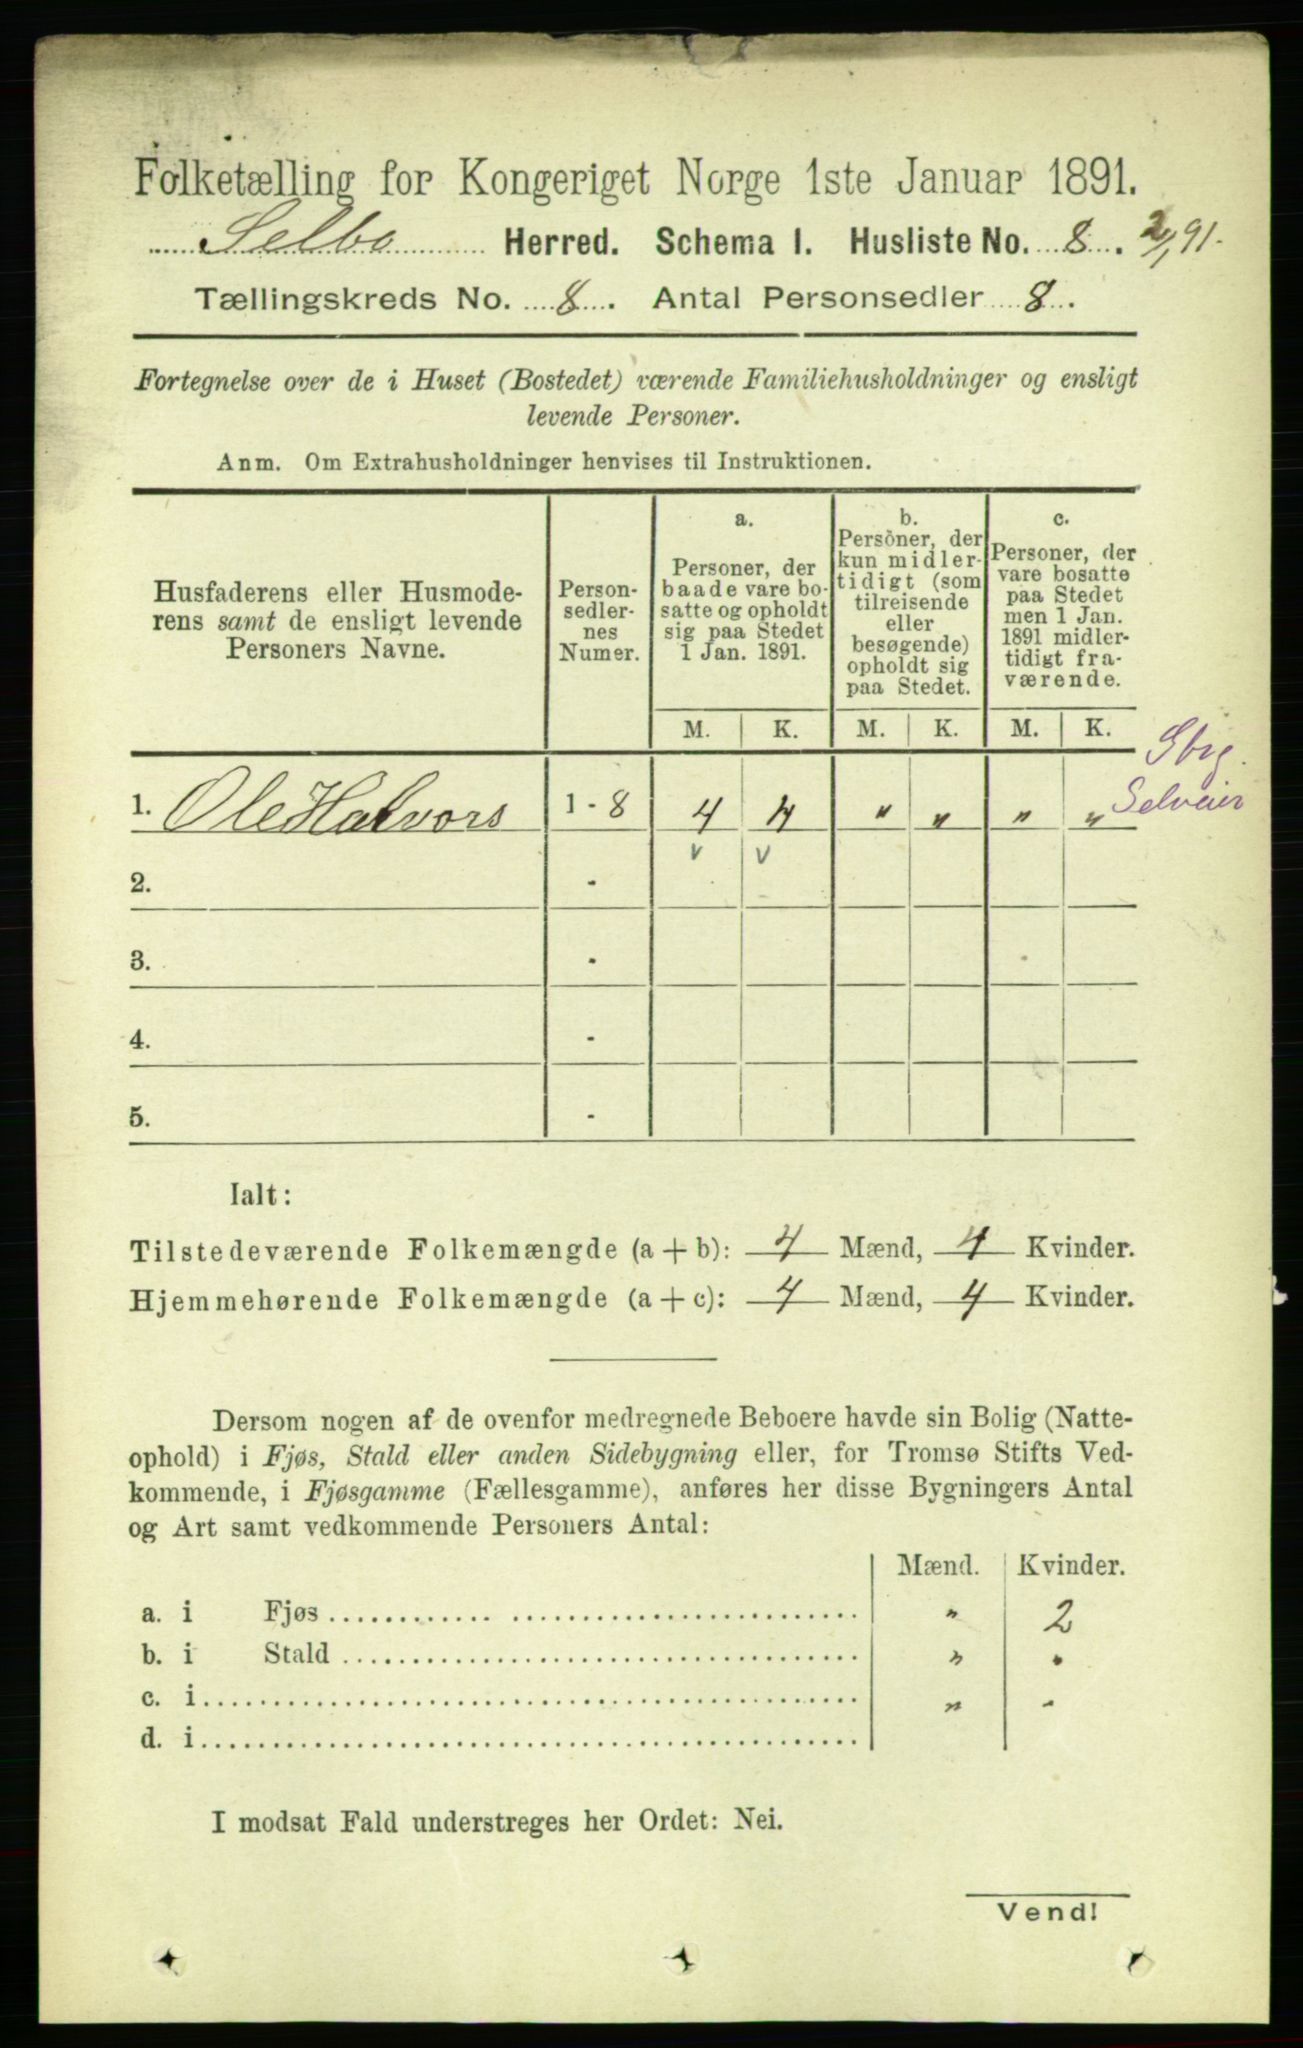 Folketælling for Kongeriget Norge 1ste Januar 1891.
Selbo Herred. Schema I. Husliste No. 8. 2/1 91.
Tællingskreds No. 8. Antal Personsedler 8.
Fortegnelse over de i Huset (Bostedet) værende Familiehusholdninger og ensligt
levende Personer.
Anm. Om Extrahusholdninger henvises til Instruktionen.
Husfaderens eller Husmode-
rens samt de ensligt levende
Personers Navne.
Person-
sedler-
nes
Numer.
a.
Personer, der
baade vare bo-
satte og opholdt
sig paa Stedet
1 Jan. 1891.
b.
Personer, der
kun midler-
tidigt (som
tilreisende
eller
besøgende)
opholdt sig
paa Stedet.
c.
Personer, der
vare bosatte
paa Stedet
men 1 Jan.
1891 midler-
tidigt fra-
værende.
M. K. M. K. M. K.
Gbrg.
Selveier
1. Ole Halvors 1 - 8 4 4 " " " "
v v
2. -
3. -
4. -
5. -
Ialt:
Tilstedeværende Folkemængde (a + b): 4 Mænd, 4 Kvinder.
Hjemmehørende Folkemængde (a + c): 4 Mænd, 4 Kvinder.
Dersom nogen af de ovenfor medregnede Beboere havde sin Bolig (Natte-
ophold) i Fjøs, Stald eller anden Sidebygning eller, for Tromsø Stifts Ved-
kommende, i Fjøsgamme (Fællesgamme), anføres her disse Bygningers Antal
og Art samt vedkommende Personers Antal:
Mænd. Kvinder.
a. i Fjøs " 2
b. i Stald " "
c. i " "
d. i
I modsat Fald understreges her Ordet: Nei.
Vend!